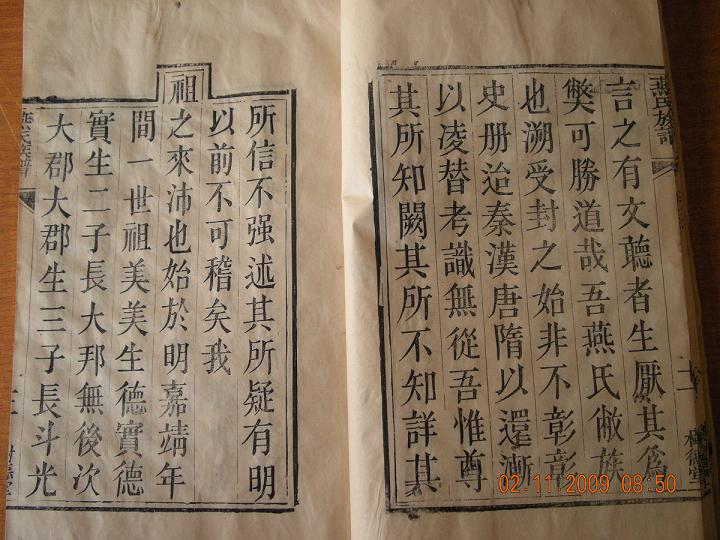 燕氏族譜
言之有文聽者生厭其為
獘可勝道哉吾燕氏敝族
也溯受封之始非不彰彰
史册迨秦漢唐隋以還漸
以凌替考識無從吾惟尊
其所知闕其所不知詳其
所信不强述其所疑有明
以前不可稽矣我
祖之來沛也始於明嘉靖年
間一世祖美美生德實德
實生二子長大邦無後次
大郡大郡生三子長斗光
02-11-2009 08:50